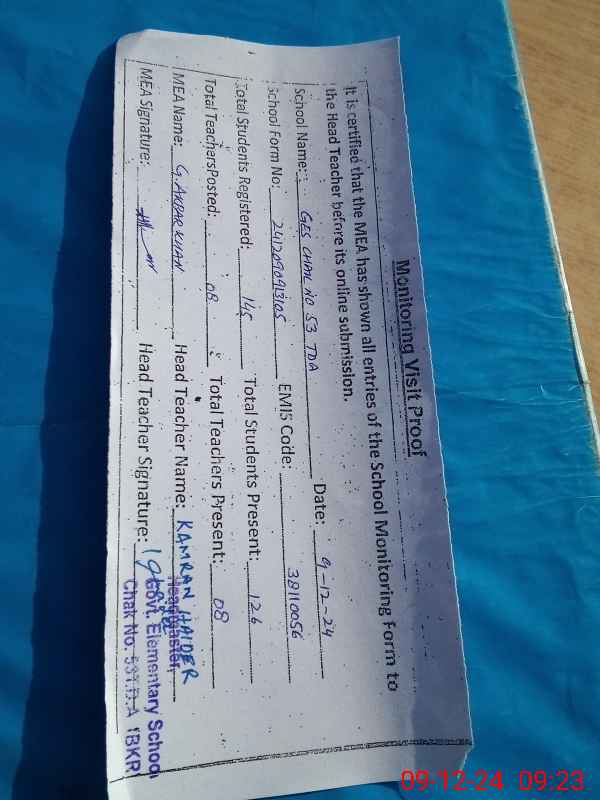 Monitoring Visit Proof
It is certified that the MEA has shown all entries of the School Monitoring Form to
the Head Teacher before its online submission.
School Name: GES CHAK NO 53 TDA Date: 9-12-24
School Form No: EMIS Code: 38110056
Total Students Registered: 145 Total Students Present: 126
Total TeachersPosted: 08 Total Teachers Present: 08
MEA Name: G. AKBAR KHAN Head Teacher Name: KAMRAN HAIDER
MEA Signature: Head Teacher Signature:
Headmaster,
Govt. Elementary School
Chak No. 53T.D.A (BKR)
09-12-24 09:23